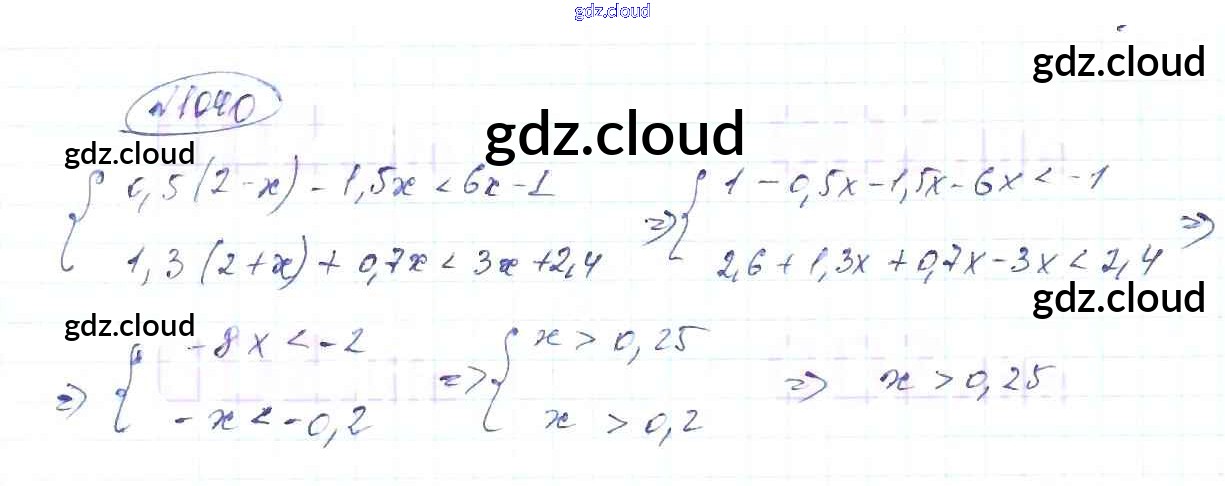 gdz.cloud
gdz.cloud
№1040
gdz.cloud
gdz.cloud
{ 0,5(2-x) - 1,5x < 6x - 1 => { 1 - 0,5x - 1,5x - 6x < -1
1,3(2+x) + 0,7x < 3x + 2,4 2,6 + 1,3x + 0,7x - 3x < 2,4 =>
gdz.cloud
gdz.cloud
=> { -8x < -2 => { x > 0,25 => x > 0,25
-x < -0,2 x > 0,2